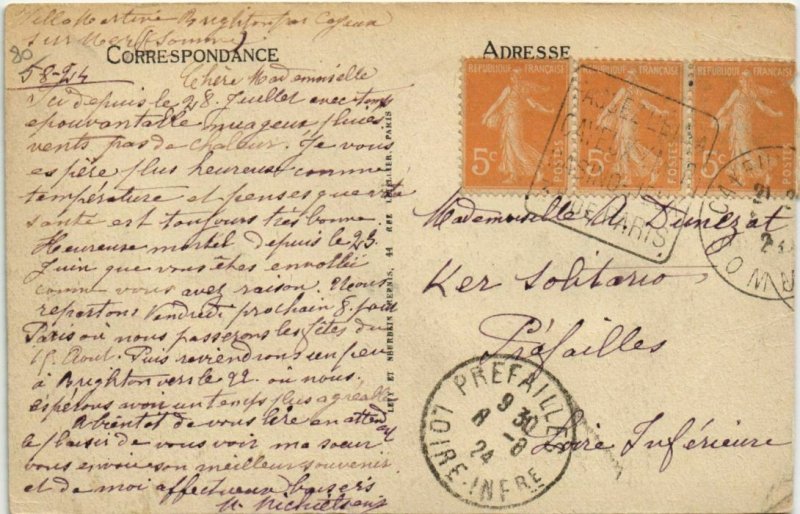 Villa Martine Brighton par Cayeux
sur Mer (Somme)
80
CORRESPONDANCE
5 8 - 24
Chère Mademoiselle
Ici depuis le 28 Juillet avec temps
épouvantable nuageux, pluies
vents pas de chaleur. Je vous
espère plus heureuse comme
température et penses que votre
santé est toujours très bonne.
Heureuse mortel depuis le 23
Juin que vous êtes envolée
comme vous avez raison. Nous
repartons Vendredi prochain 8 pour
Paris où nous passerons les fêtes du
15 Aout. Puis reviendrons un peu
à Brighton vers le 22 où nous
espérons avoir un temps plus agréable
A bientôt de vous lire en attendant
le plaisir de vous voir ma sœur
vous envoie son meilleur souvenir
et de moi affectueux baisers
LEVY ET NEURDEIN RÉUNIS, 44 RUE LETELLIER, PARIS
ADRESSE
REPUBLIQUE FRANÇAISE
5c
POSTES
REPUBLIQUE FRANÇAISE
5c
POSTES
REPUBLIQUE FRANÇAISE
5c
POSTES
CAYEUX
PARIS
Mademoiselle
Ker Solitario
Préfailles
Loire Inférieure
PREFAILLES
9 30
8 -8
24
LOIRE-INFRE